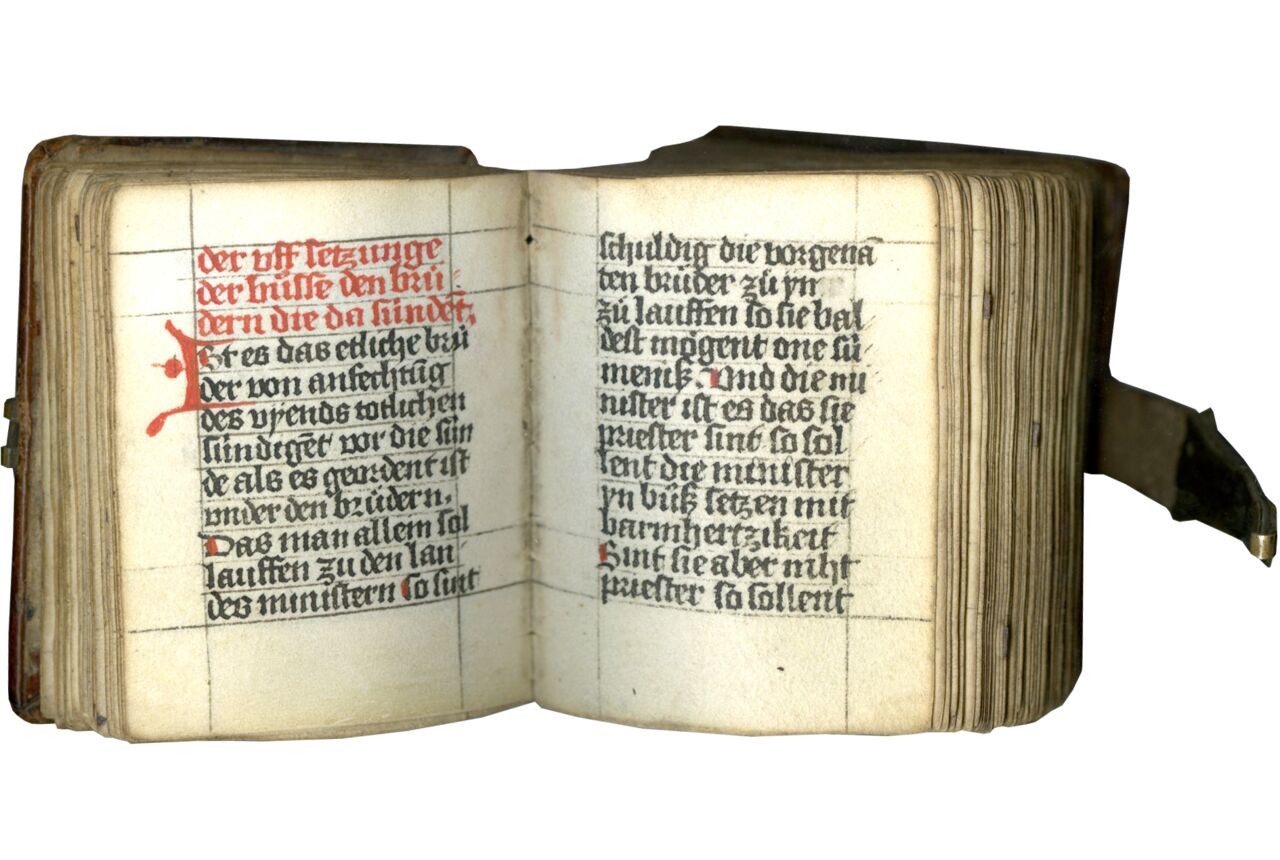 der vff setzunge
der bússe den brú
dern die da súndēt,
Ist es das etliche brú
der von anfechtūg
des vyends totlichen
súndigēt vor die sún
de als es geordent ist
vnder den brúdern.
Das man allein sol
lauffen zú den lan
des ministern so sint
schuldig die vorgenā
ten brúder zú yn
zú lauffen so sie bal
dest mögent one sú
meniß. Und die mi
nister ist es das sie
priester sint so sol
lent die minister
yn búß setzen mit
barmhertzikeit
Sint sie aber niht
priester so sollent